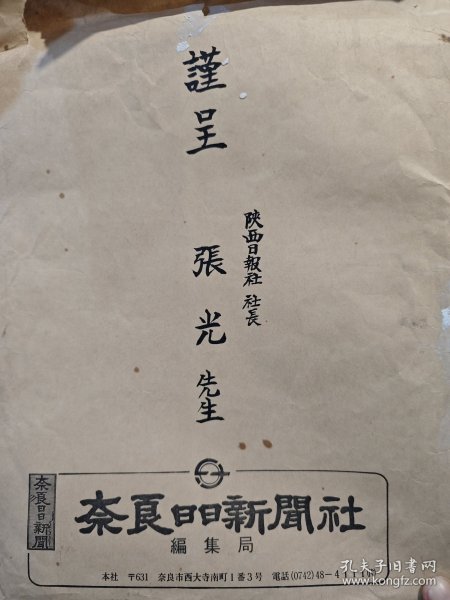 謹呈
陝西日報社 社長
張光先生
奈良日日新聞
奈良日日新聞社
編集局
本社 〒631 奈良市西大寺南町1番3号 電話(0742)48-4
孔夫子旧书网
www.kongfz.com